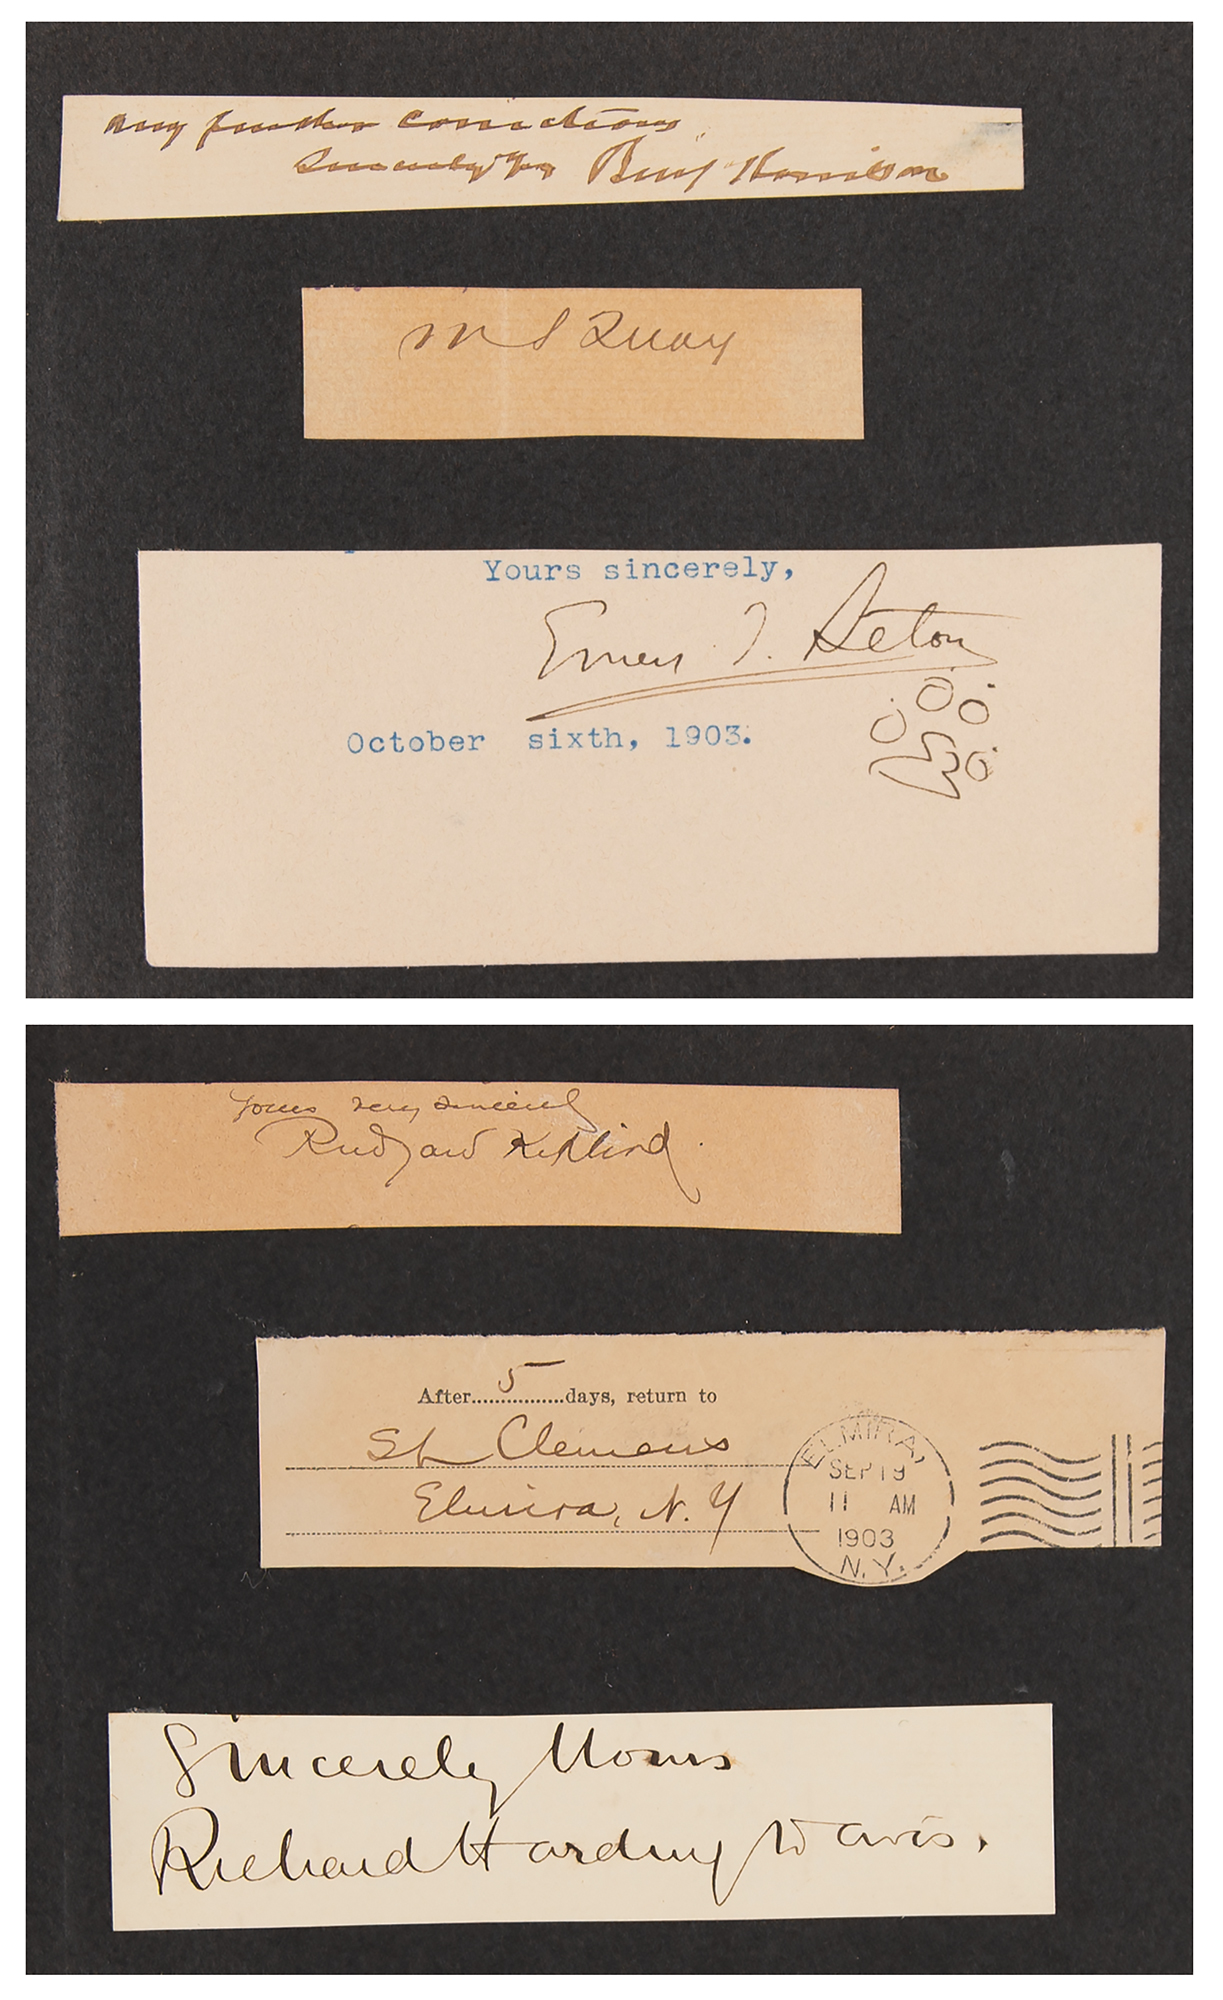 any further corrections.
Sincerely Yrs Benj Harrison
M S Quay
Yours sincerely,
Ernest T. Seton
October sixth, 1903.
Yours very sincerely
Rudyard Kipling.
After 5 days, return to
SL Clemens
Elmira, N.Y
ELMIRA,
SEP 19
11 AM
1903
N.Y.
Sincerely Yours
Richard Harding Davis.